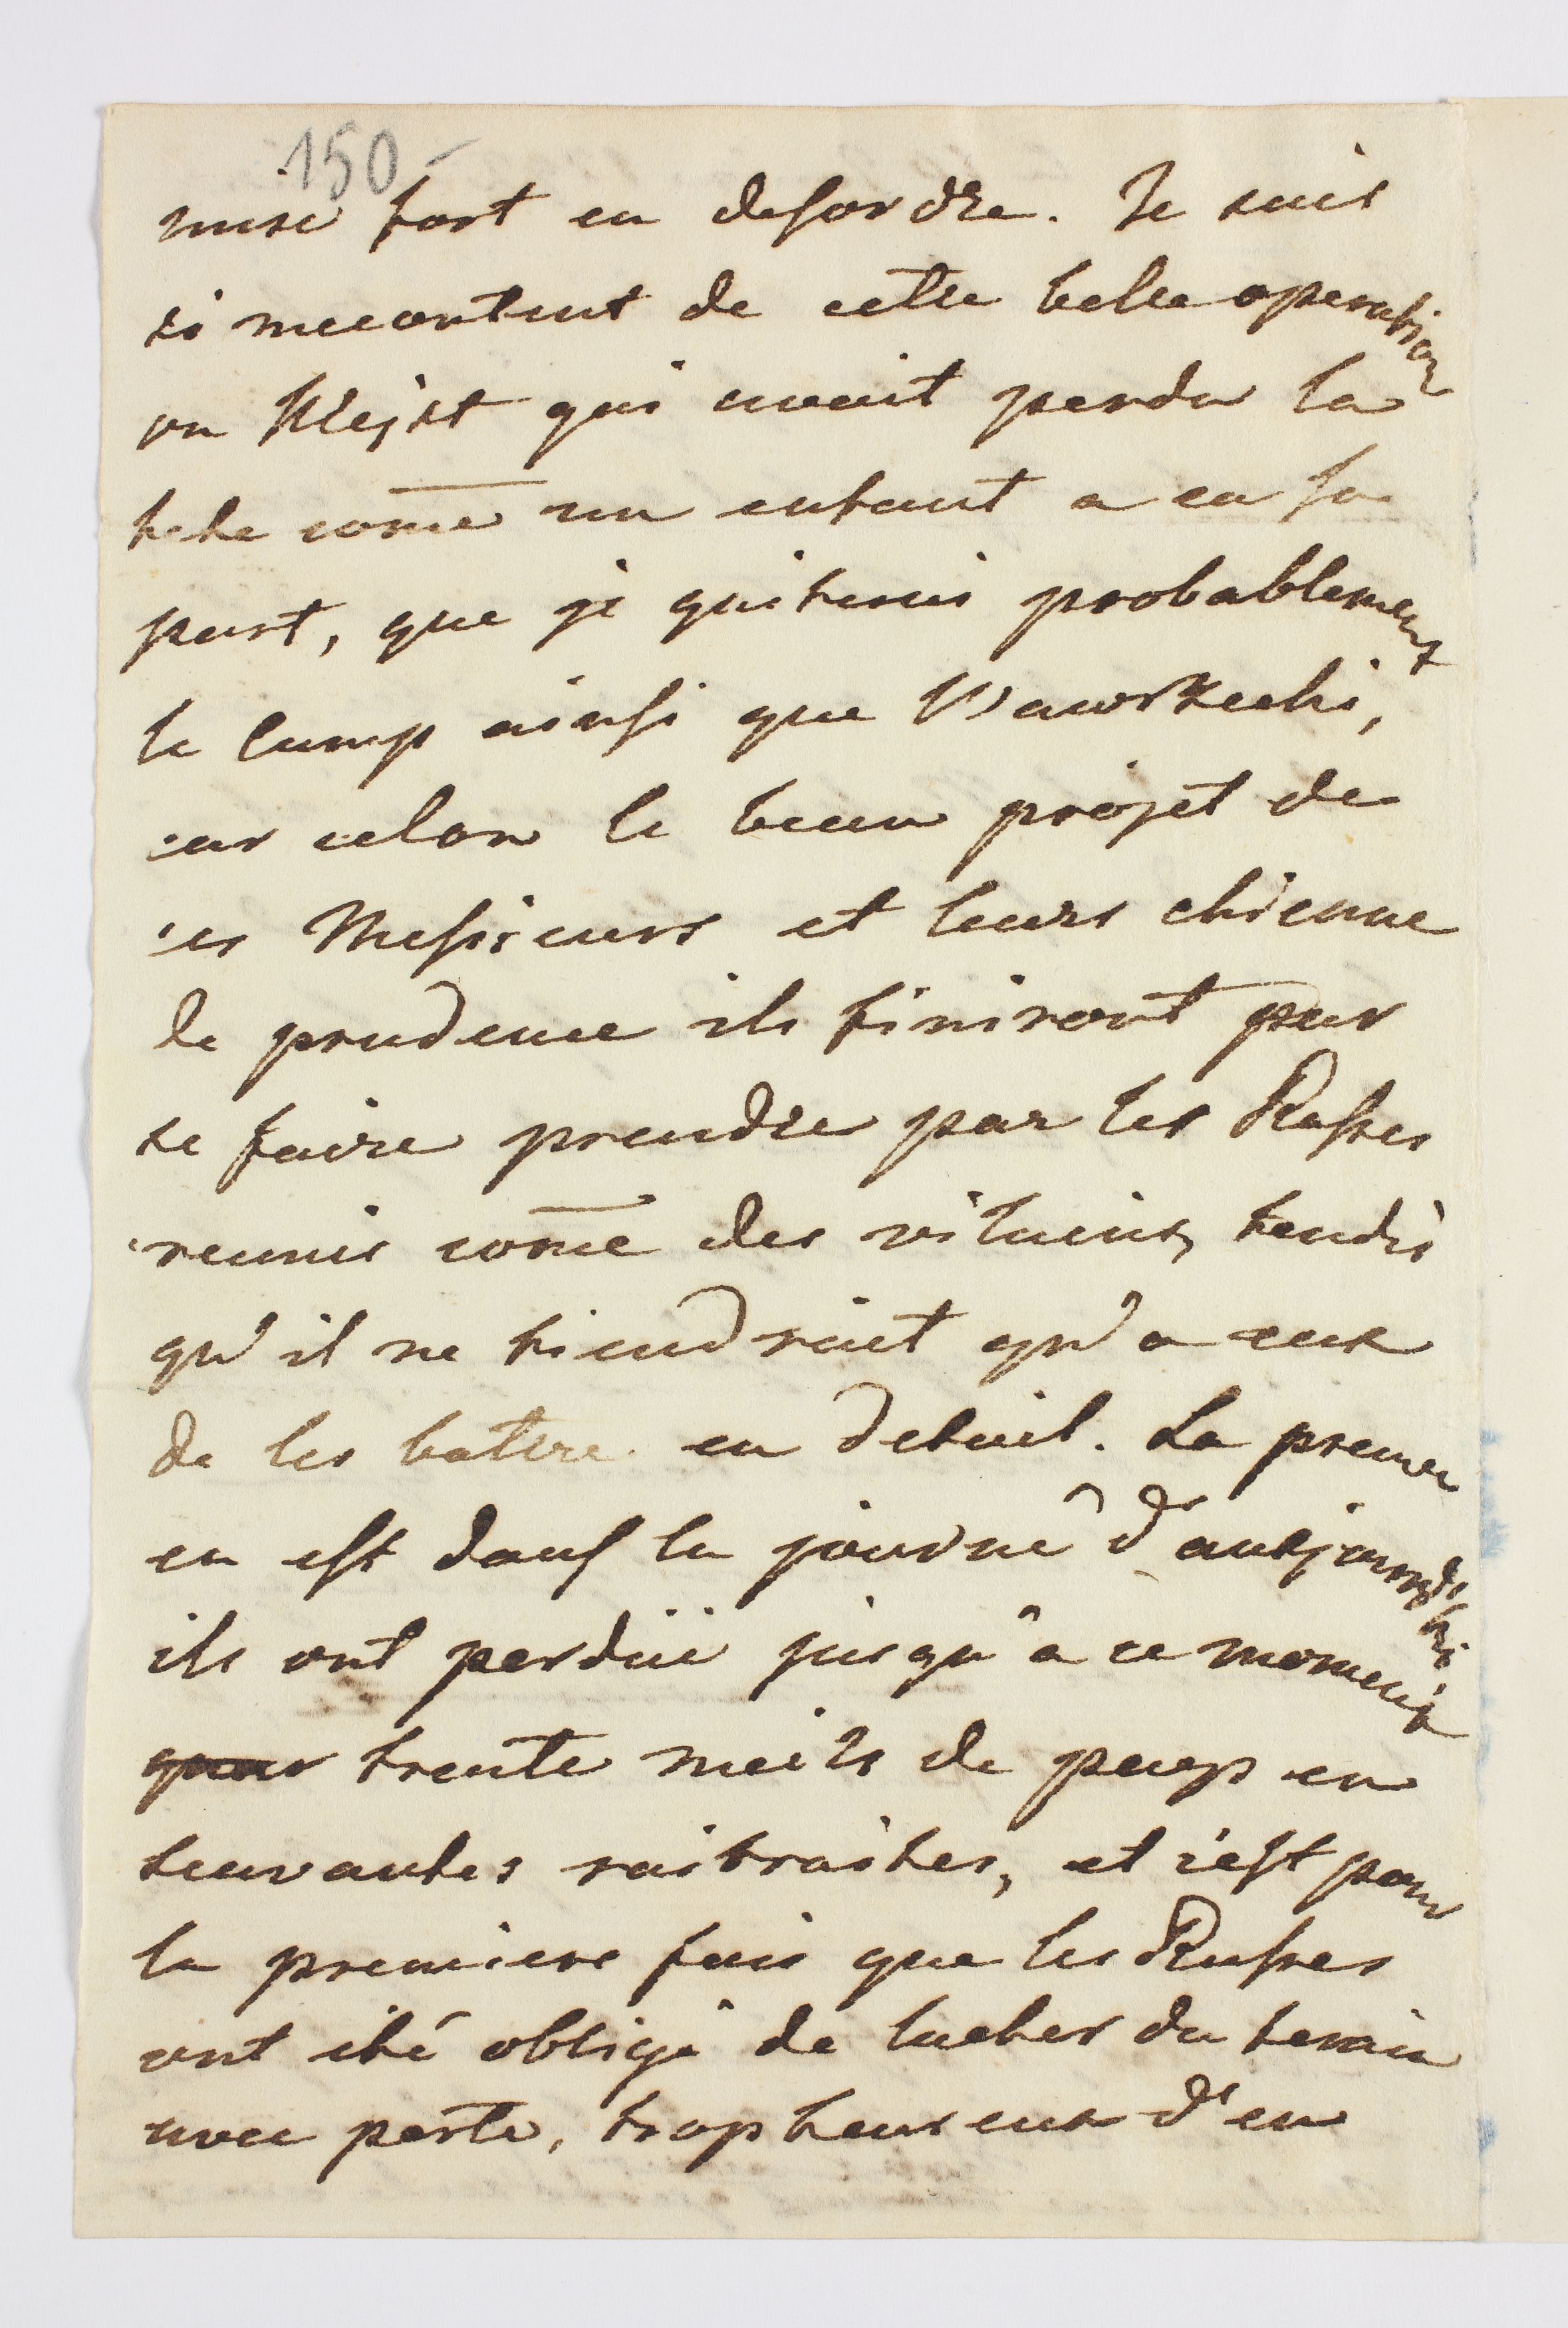 150
mise fort en desordre. Je suis
si mecontent de cette belle operation
ou Klejst qui avait perdu la
tete come un enfant a eu sa
part, que je quiterai probablement
le camp ainsi que Wawrzecki,
car celon le beau projet de
ces Messieurs et leurs chienne
de prudence ils finiront par
se faire prendre par les Russes
reunis come des vilains, tendis
qu'il ne tiendrait qu'a eux
de les batre en detail. La preuve
en est dans la journé d'aujourd'hui
ils ont perdüe jusqu'a ce moment
trente meils de pays en
leur antes raitraites, et c'est pour
la premiere fois que les Russes
ont été obligé de lacher du terain
avec perte, trop heureux d'en